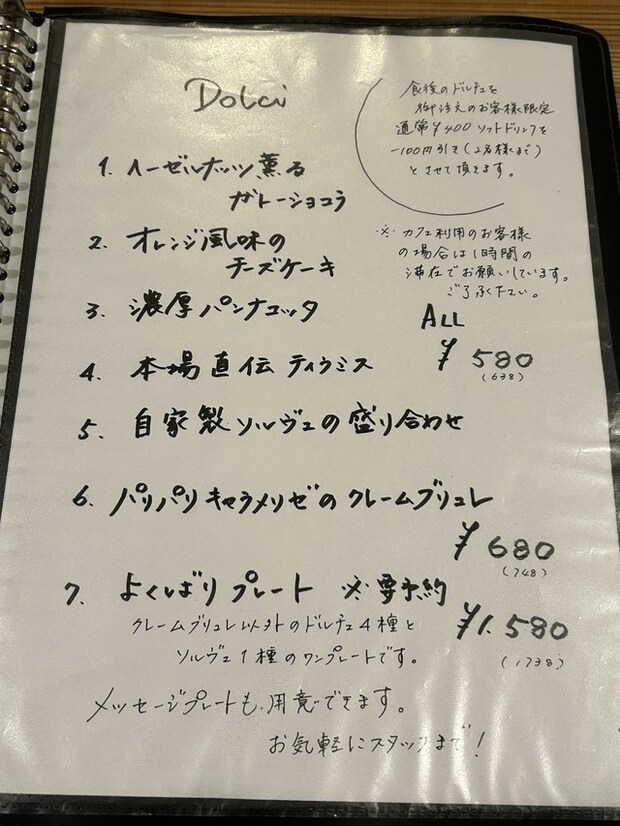 Dolci
食後のドルチェを
御注文のお客様限定
通常¥400ソフトドリンクを
-100円引き(2名様まで)
とさせて頂きます。
1. ヘーゼルナッツ薫る
ガトーショコラ
2. オレンジ風味の
チーズケーキ
※カフェ利用のお客様
の場合は1時間の
滞在でお願いしています。
ご了承下さい。
3. 濃厚パンナコッタ
ALL
¥580
(638)
4. 本場直伝ティラミス
5. 自家製ソルヴェの盛り合わせ
6. パリパリキャラメリゼのクレームブリュレ
¥680
(748)
7. よくばりプレート ※要予約
¥1.580
(1738)
クレームブリュレ以外のドルチェ4種と
ソルヴェ1種のワンプレートです。
メッセージプレートも用意できます。
お気軽にスタッフまで!